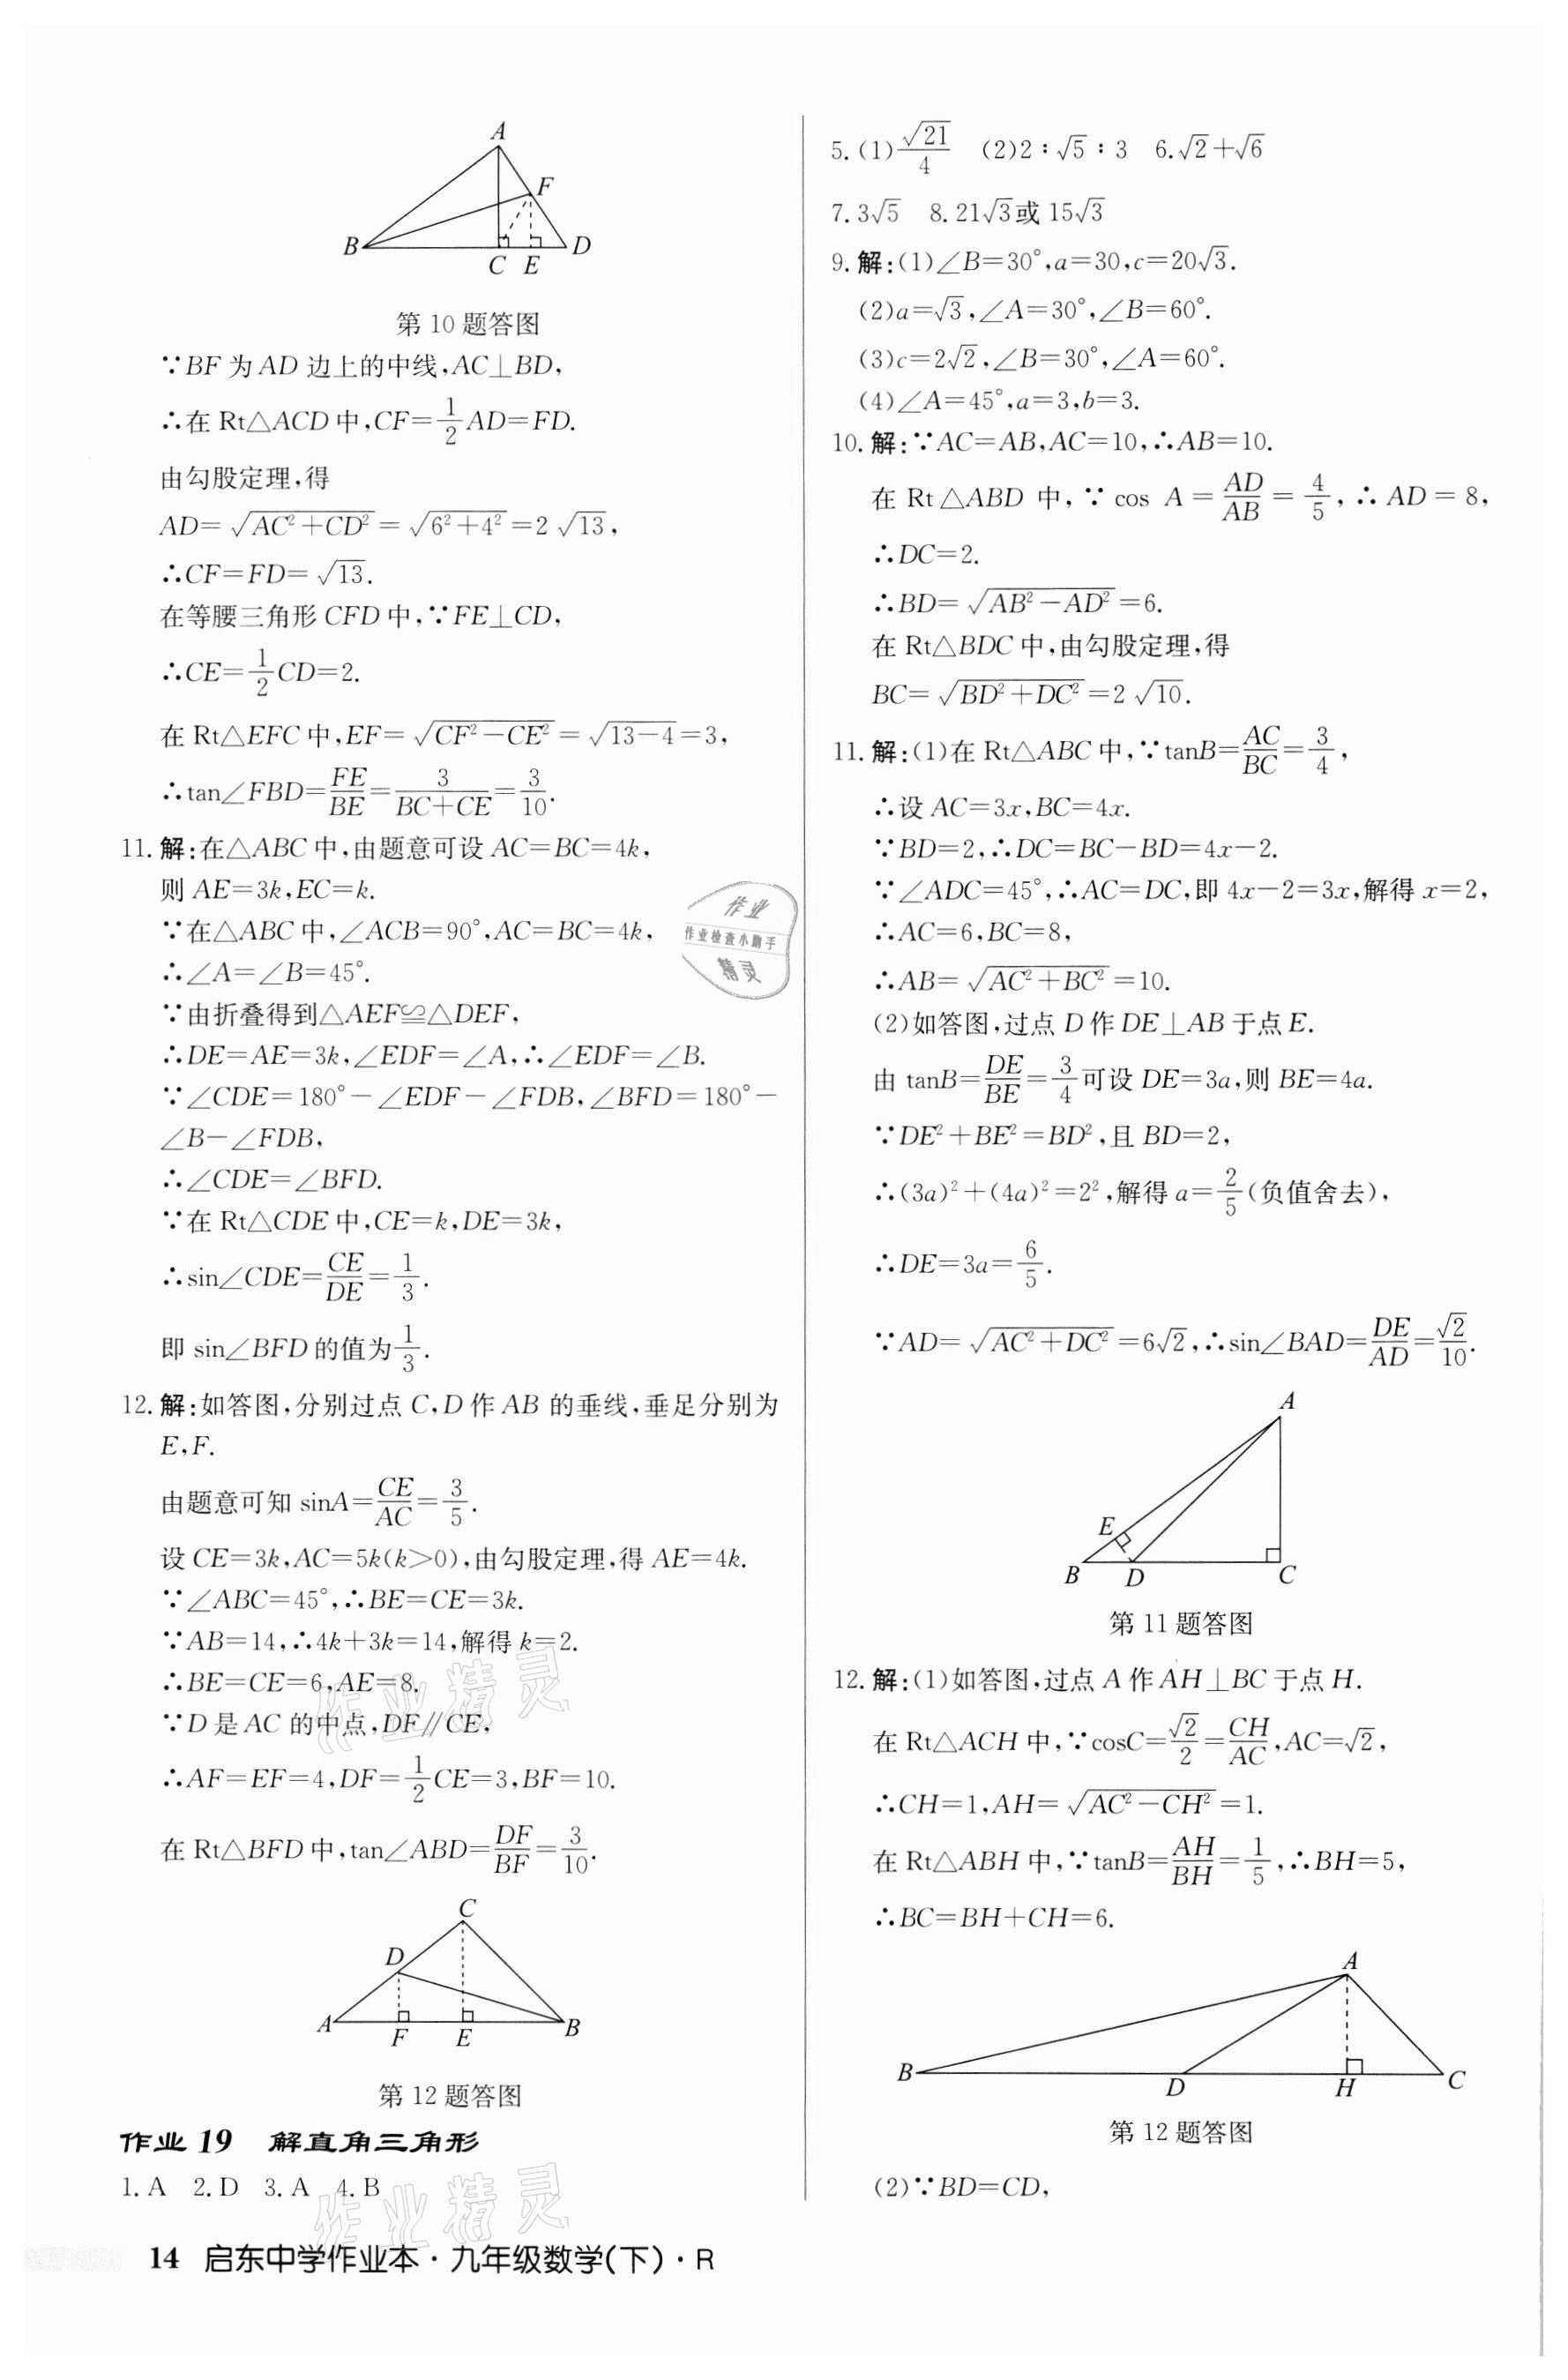 A
F
B
D
C E
第 10 题答图
∵BF 为 AD 边上的中线,AC⊥BD,
∴在 Rt△ACD 中,CF=1/2 AD=FD.
由勾股定理,得
AD=√(AC²+CD²)=√(6²+4²)=2√13,
∴CF=FD=√13.
在等腰三角形 CFD 中,∵FE⊥CD,
∴CE=1/2 CD=2.
在 Rt△EFC 中,EF=√(CF²-CE²)=√(13-4)=3,
∴tan∠FBD=FE/BE=3/(BC+CE)=3/10.
11. 解:在△ABC 中,由题意可设 AC=BC=4k,
则 AE=3k,EC=k.
∵在△ABC 中,∠ACB=90°,AC=BC=4k,
∴∠A=∠B=45°.
∵由折叠得到△AEF≌△DEF,
∴DE=AE=3k,∠EDF=∠A,∴∠EDF=∠B.
∵∠CDE=180°-∠EDF-∠FDB,∠BFD=180°-
∠B-∠FDB,
∴∠CDE=∠BFD.
∵在 Rt△CDE 中,CE=k,DE=3k,
∴sin∠CDE=CE/DE=1/3.
即 sin∠BFD 的值为1/3.
12. 解:如答图,分别过点 C,D 作 AB 的垂线,垂足分别为
E,F.
由题意可知 sinA=CE/AC=3/5.
设 CE=3k,AC=5k(k>0),由勾股定理,得 AE=4k.
∵∠ABC=45°,∴BE=CE=3k.
∵AB=14,∴4k+3k=14,解得 k=2.
∴BE=CE=6,AE=8.
∵D 是 AC 的中点,DF∥CE,
∴AF=EF=4,DF=1/2 CE=3,BF=10.
在 Rt△BFD 中,tan∠ABD=DF/BF=3/10.
C
D
A
F E B
第 12 题答图
作业 19 解直角三角形
1. A 2. D 3. A 4. B
14 启东中学作业本·九年级数学(下)·R
5. (1)√21/4 (2)2∶√5∶3 6. √2+√6
7. 3√5 8. 21√3或 15√3
9. 解:(1)∠B=30°,a=30,c=20√3.
(2)a=√3,∠A=30°,∠B=60°.
(3)c=2√2,∠B=30°,∠A=60°.
(4)∠A=45°,a=3,b=3.
10. 解:∵AC=AB,AC=10,∴AB=10.
在 Rt△ABD 中,∵cos A=AD/AB=4/5,∴AD=8,
∴DC=2.
∴BD=√(AB²-AD²)=6.
在 Rt△BDC 中,由勾股定理,得
BC=√(BD²+DC²)=2√10.
11. 解:(1)在 Rt△ABC 中,∵tanB=AC/BC=3/4,
∴设 AC=3x,BC=4x.
∵BD=2,∴DC=BC-BD=4x-2.
∵∠ADC=45°,∴AC=DC,即 4x-2=3x,解得 x=2,
∴AC=6,BC=8,
∴AB=√(AC²+BC²)=10.
(2)如答图,过点 D 作 DE⊥AB 于点 E.
由 tanB=DE/BE=3/4可设 DE=3a,则 BE=4a.
∵DE²+BE²=BD²,且 BD=2,
∴(3a)²+(4a)²=2²,解得 a=2/5(负值舍去),
∴DE=3a=6/5.
∵AD=√(AC²+DC²)=6√2,∴sin∠BAD=DE/AD=√2/10.
A
E
B D C
第 11 题答图
12. 解:(1)如答图,过点 A 作 AH⊥BC 于点 H.
在 Rt△ACH 中,∵cosC=√2/2=CH/AC,AC=√2,
∴CH=1,AH=√(AC²-CH²)=1.
在 Rt△ABH 中,∵tanB=AH/BH=1/5,∴BH=5,
∴BC=BH+CH=6.
A
B
D H C
第 12 题答图
(2)∵BD=CD,
作业
作业检查小助手
精灵
作业精灵
作业精灵